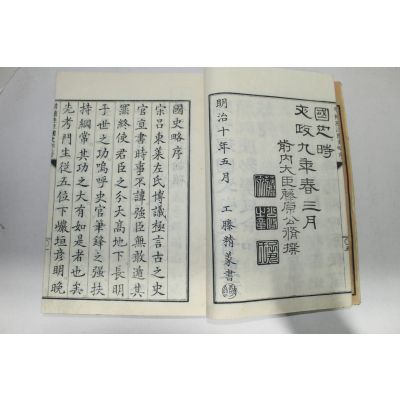 國史略
文政九年春三月
前內大臣藤原公脩撰
明治十年五月
工藤精篆書
國史略序
宋呂東萊左氏博議極言古之史
官直書時事不諱強臣無敢逃其
罪終使君臣之分天高地下長明
于世之功嗚呼史官筆鋒之强扶
持綱常其功之大有如是者也矣
先考門生從五位下巖垣彥明晚